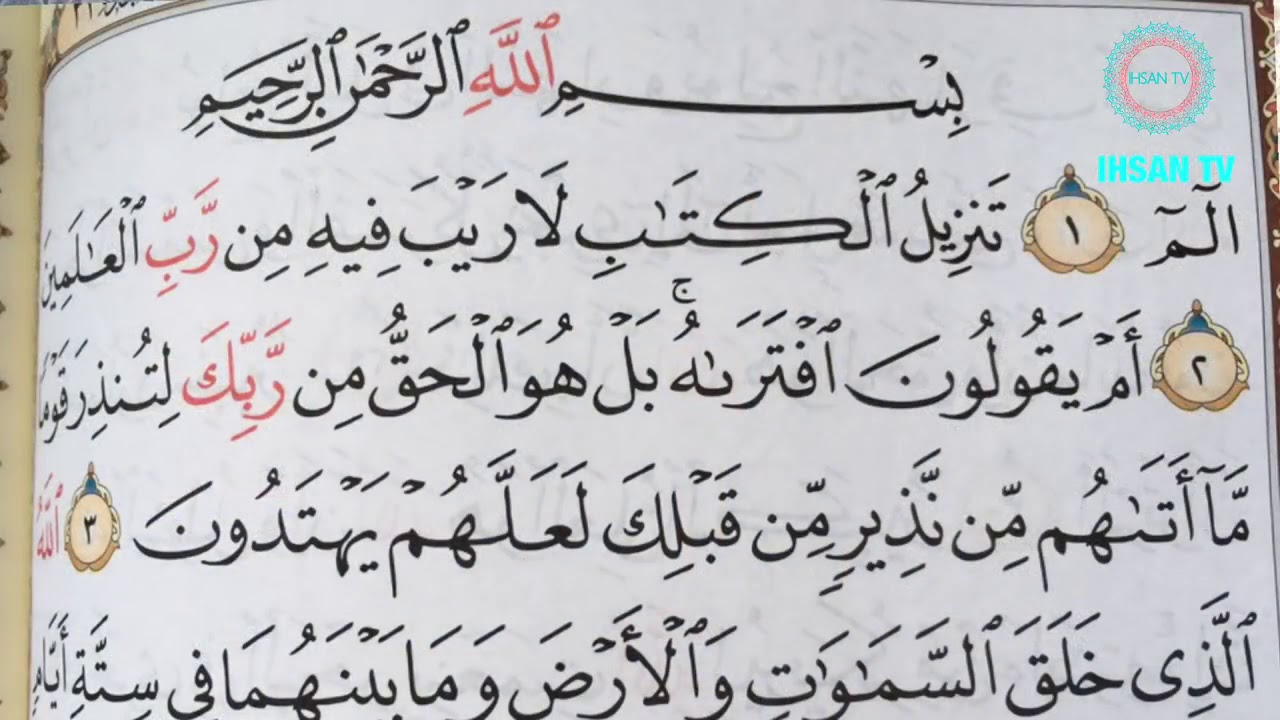 بِسْمِ ٱللَّهِ ٱلرَّحْمَٰنِ ٱلرَّحِيمِ
IHSAN TV
IHSAN TV
الٓمٓ ١ تَنزِيلُ ٱلْكِتَٰبِ لَا رَيْبَ فِيهِ مِن رَّبِّ ٱلْعَٰلَمِينَ
٢ أَمْ يَقُولُونَ ٱفْتَرَىٰهُ ۚ بَلْ هُوَ ٱلْحَقُّ مِن رَّبِّكَ لِتُنذِرَ قَوْمًا
مَّآ أَتَىٰهُم مِّن نَّذِيرٍ مِّن قَبْلِكَ لَعَلَّهُمْ يَهْتَدُونَ ٣ ٱللَّهُ
ٱلَّذِى خَلَقَ ٱلسَّمَٰوَٰتِ وَٱلْأَرْضَ وَمَا بَيْنَهُمَا فِى سِتَّةِ أَيَّامٍ